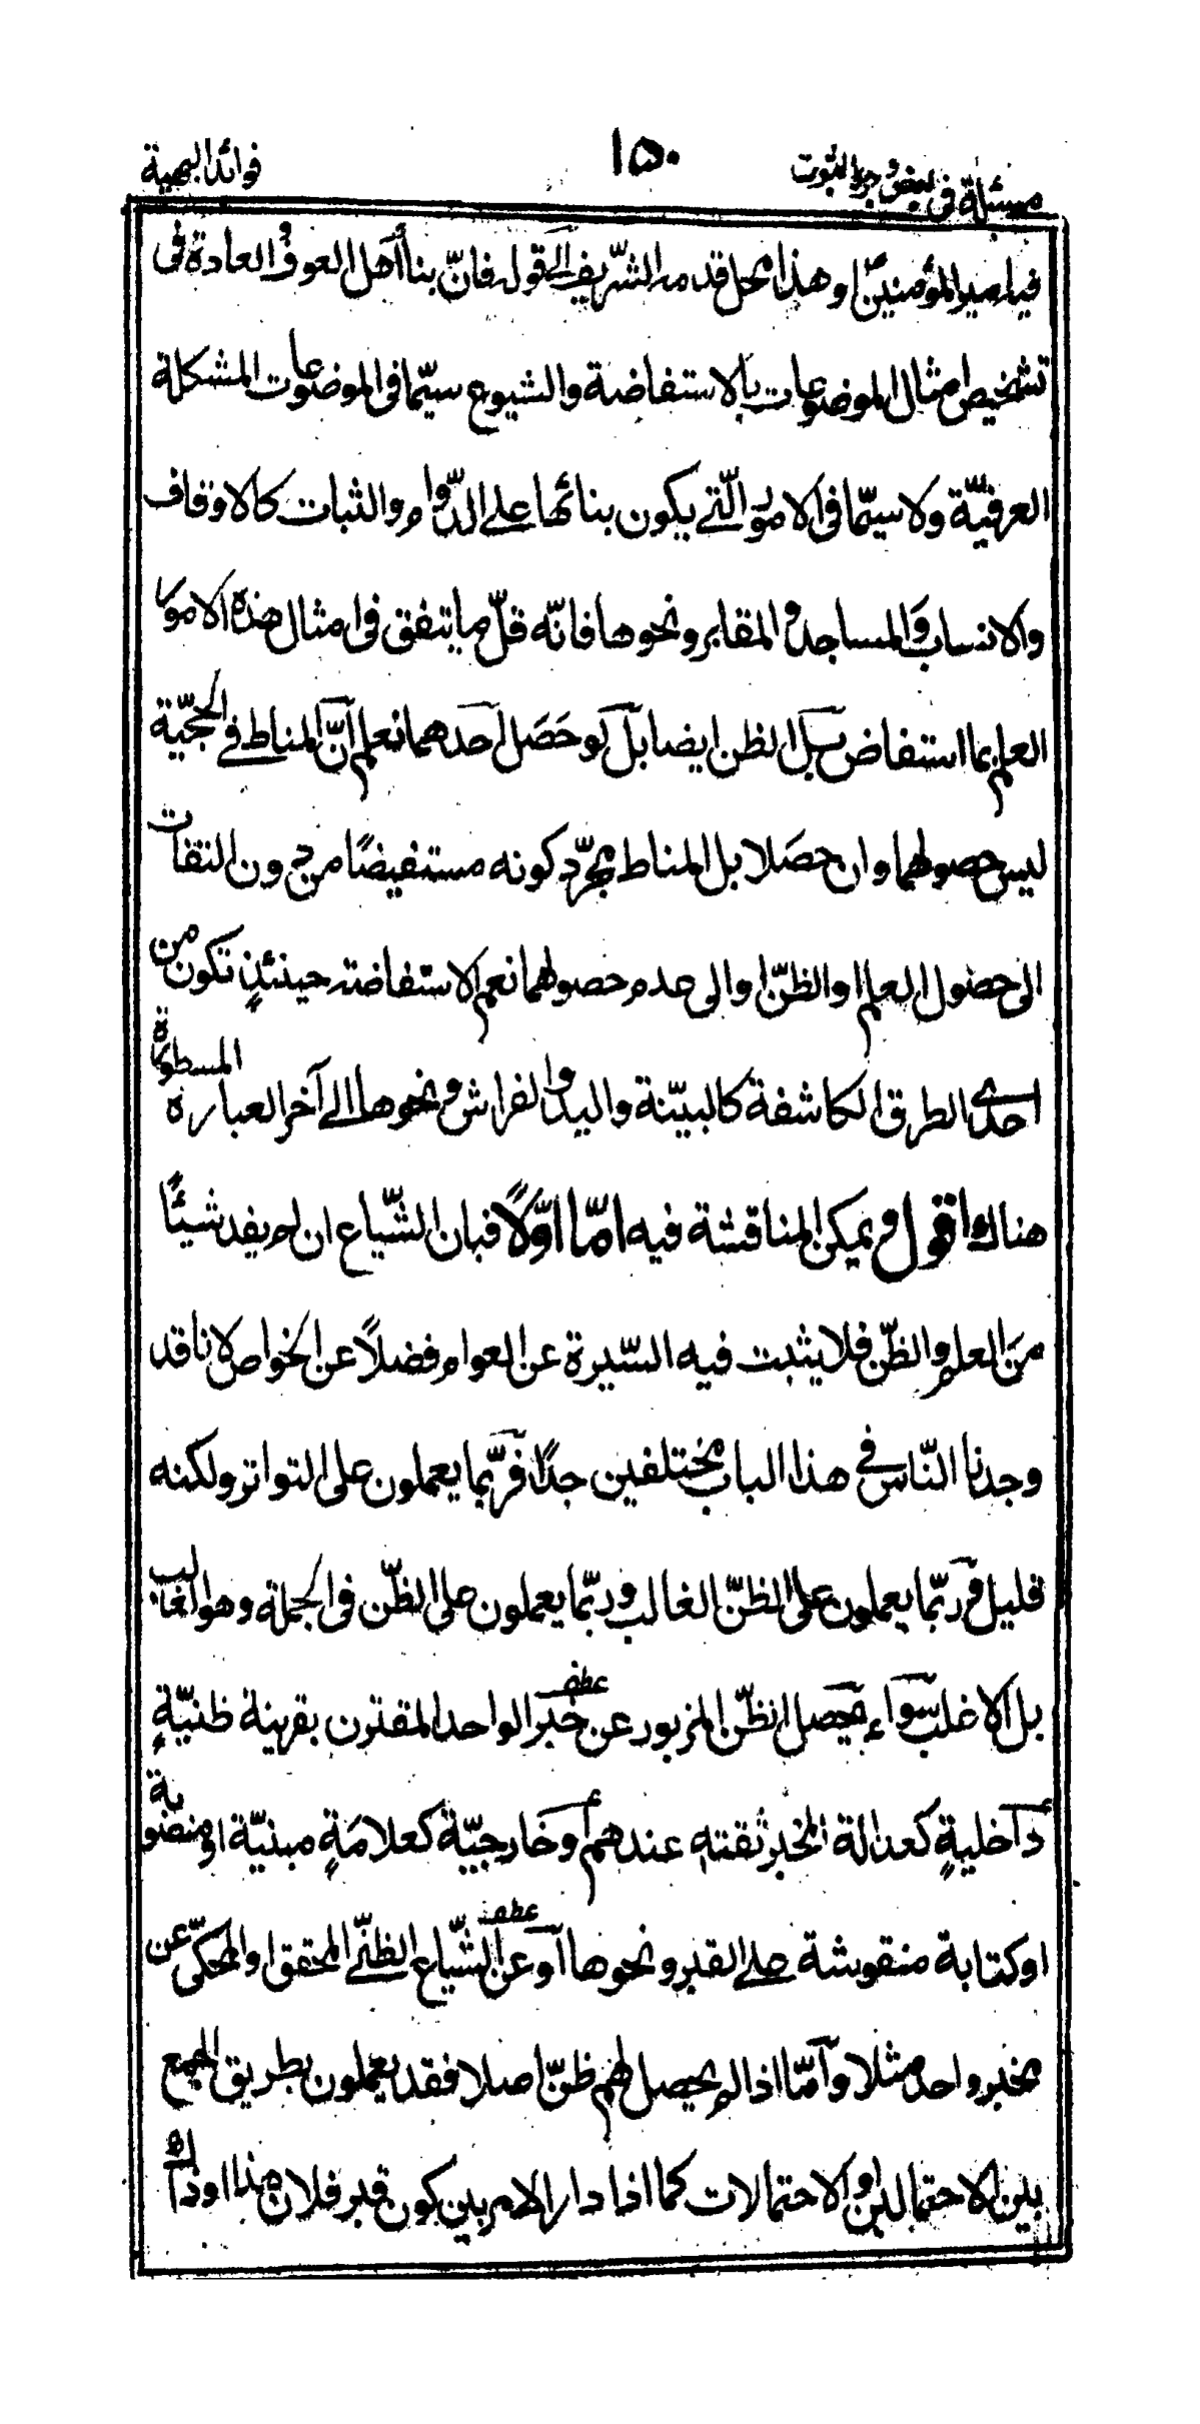 مسئلة فى بعض وجوه الثبوت
١٥٠
فوائد البهية
فيا امير المؤمنين او هذا محل قدمه الشريف الى قوله فانّ بناء أهل العرف والعادة فى
تشخيص امثال الموضوعات بالاستفاضة والشيوع سيّما فى الموضوعات المشكلة
العرفيّة ولا سيّما فى الامور الّتى يكون بنائها على الدّوام والثبات كالاوقاف
والانساب والمساجد والمقابر ونحوها فانّه قلّ ما يتفق فى امثال هذه الامور
العلم بما استفاض بل الظن ايضا بل لو حَصَل احدهما نعلم انّ المناط فى الحجيّة
ليس حصولهما وان حصَلا بل المناط مجرّد كونه مستفيضًا من دون التفات
الى حصول العلم او الظنّ او الى عدم حصولهما نعم الاستفاضته حينئذٍ تكون من
احدى الطرق الكاشفة كالبيّنة واليد والفراش ونحوها الى آخر العبارة المسطورة
هناك واقول ويمكن المناقشة فيه امّا اوّلاً فبان الشّياع ان لم يفد شيئًا
منَ العلم والظنّ فلا يثبت فيه السّيرة عن العوام فضلاً عن الخواص لانا قد
وجدنا النّاس فى هذا الباب مختلفين جدًا فربّما يعملون على التواتر ولكنه
قليل وربّما يعملون على الظنّ الغالب وربّما يعملون على الظنّ فى الجملة وهو الغالب
بل الاغلب سَواء يحصل الظنّ المزبور عن خبر الواحد المقترن بقرينة ظنيّةٍ
داخليةٍ كعدالة المخبر ثقته عندهم أو خارجيّة كعلامَةٍ مبنيّة او منصوبة
او كتابة منقوشة على القبر ونحوها او عن الشّياع الظنّى المحقق او المحكىّ عن
مخبر واحد مثلا وأمّا اذا لم يحصل لهم ظنّ اصلا فقد يعملون بطريق الجمع
بين الاحتمالين والاحتمالات كما اذا دار الامر بين كون قبر فلان هذا او ذاك